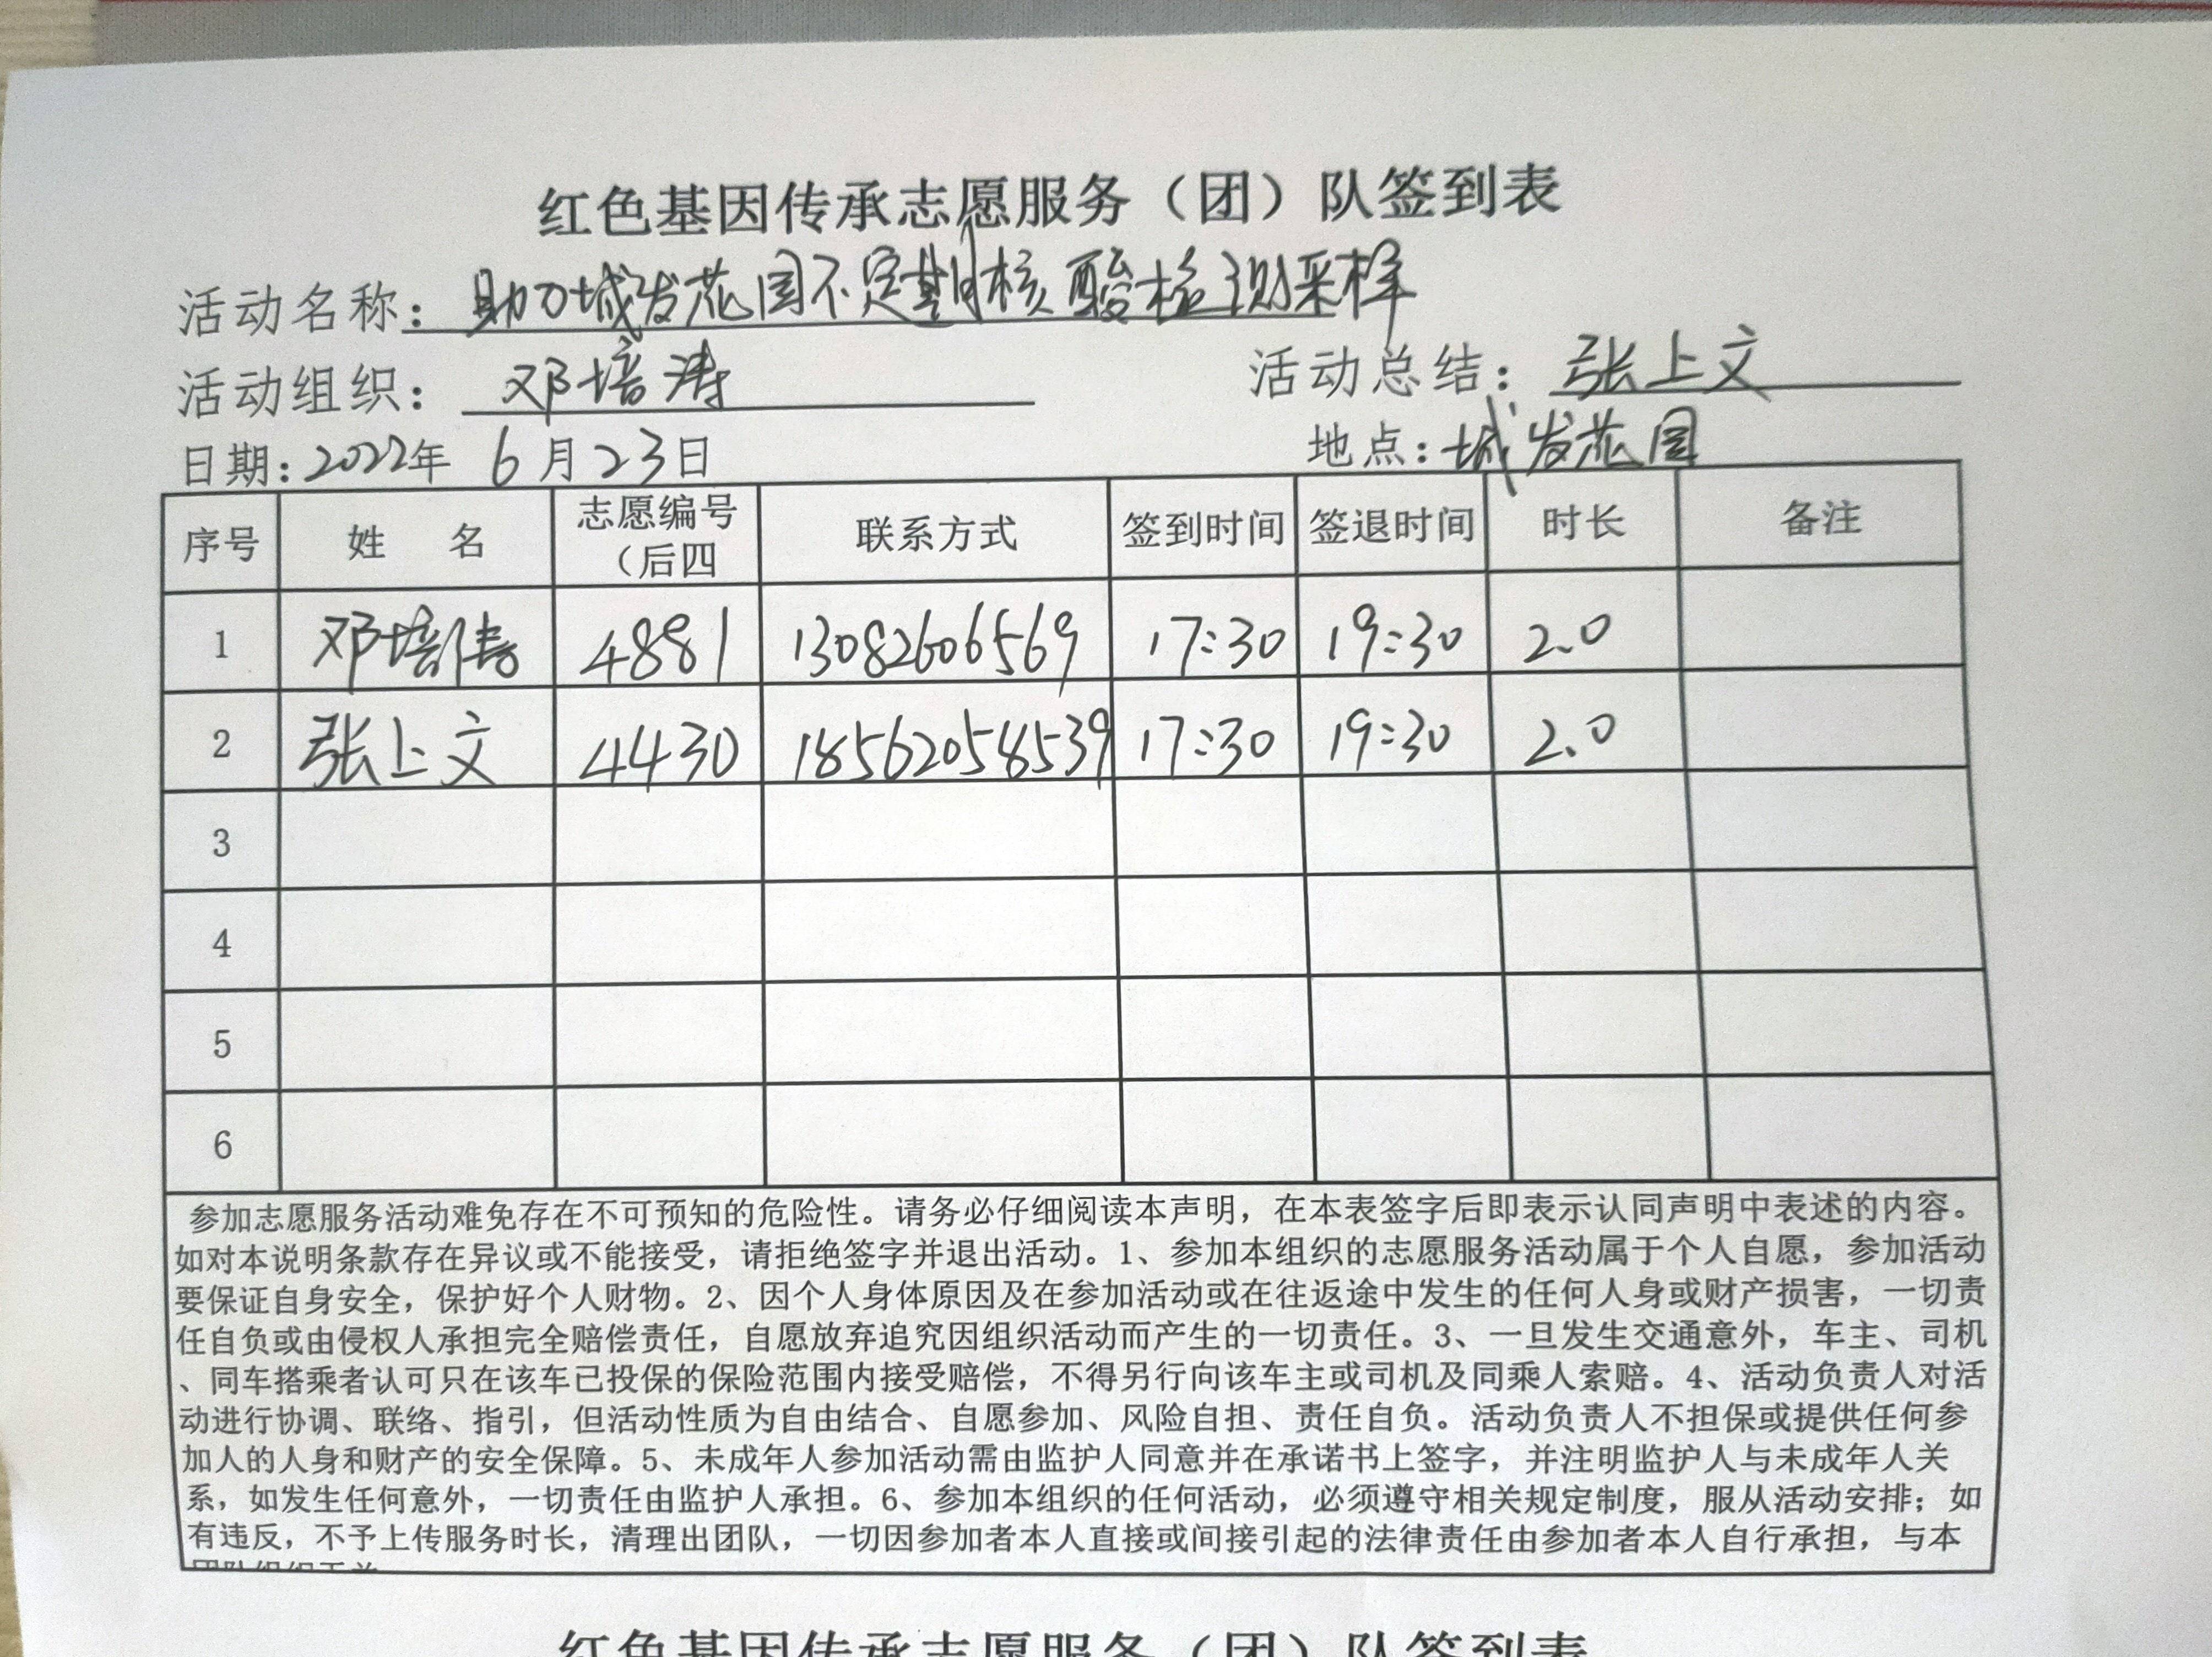 红色基因传承志愿服务（团）队签到表
活动名称：助力城发花园不定期核酸检测采样
活动组织：邓培涛 活动总结：张上文
日期：2022年 6月23日 地点：城发花园
序号 姓 名 志愿编号（后四 联系方式 签到时间 签退时间 时长 备注
1 邓培涛 4881 13082606569 17:30 19:30 2.0
2 张上文 4430 18562058539 17:30 19:30 2.0
3
4
5
6
参加志愿服务活动难免存在不可预知的危险性。请务必仔细阅读本声明，在本表签字后即表示认同声明中表述的内容。
如对本说明条款存在异议或不能接受，请拒绝签字并退出活动。1、参加本组织的志愿服务活动属于个人自愿，参加活动
要保证自身安全，保护好个人财物。2、因个人身体原因及在参加活动或在往返途中发生的任何人身或财产损害，一切责
任自负或由侵权人承担完全赔偿责任，自愿放弃追究因组织活动而产生的一切责任。3、一旦发生交通意外，车主、司机
、同车搭乘者认可只在该车已投保的保险范围内接受赔偿，不得另行向该车主或司机及同乘人索赔。4、活动负责人对活
动进行协调、联络、指引，但活动性质为自由结合、自愿参加、风险自担、责任自负。活动负责人不担保或提供任何参
加人的人身和财产的安全保障。5、未成年人参加活动需由监护人同意并在承诺书上签字，并注明监护人与未成年人关
系，如发生任何意外，一切责任由监护人承担。6、参加本组织的任何活动，必须遵守相关规定制度，服从活动安排；如
有违反，不予上传服务时长，清理出团队，一切因参加者本人直接或间接引起的法律责任由参加者本人自行承担，与本
红色基因传承志愿服务（团）队签到表